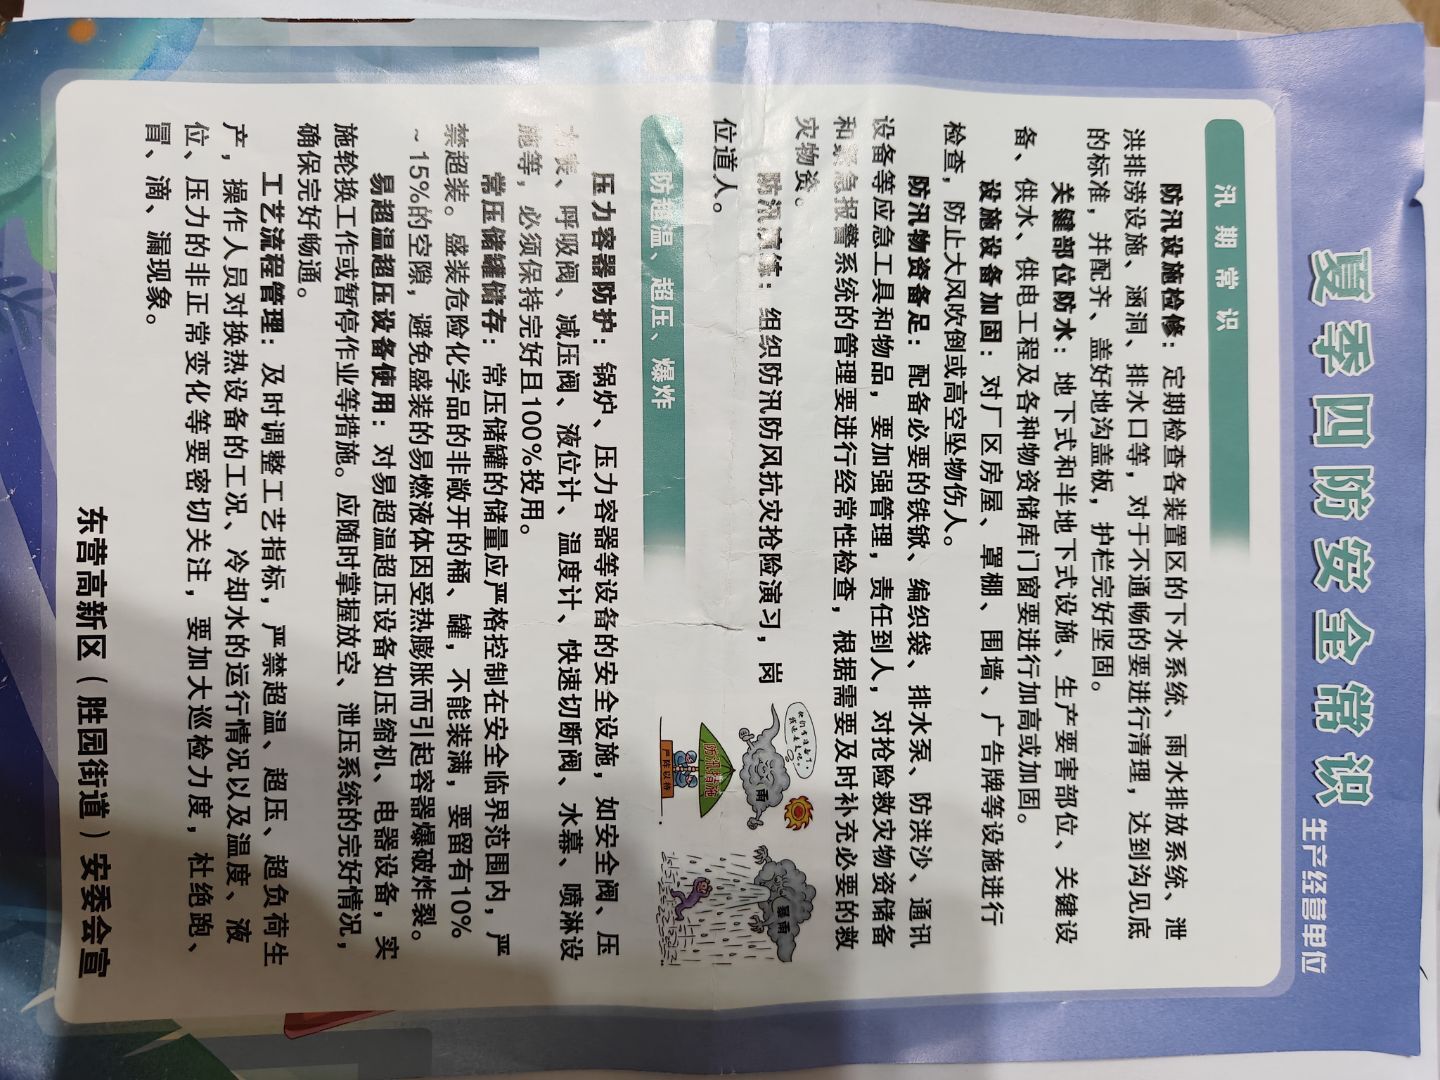 夏季四防安全常识
生产经营单位
汛期常识
防汛设施检修：定期检查各装置区的下水系统、雨水排放系统、泄
洪排涝设施、涵洞、排水口等，对于不通畅的要进行清理，达到沟见底
的标准，并配齐、盖好地沟盖板，护栏完好坚固。
关键部位防水：地下式和半地下式设施、生产要害部位、关键设
备、供水、供电工程及各种物资储库门窗要进行加高或加固。
设施设备加固：对厂区房屋、罩棚、围墙、广告牌等设施进行
检查，防止大风吹倒或高空坠物伤人。
防汛物资备足：配备必要的铁锨、编织袋、排水泵、防洪沙、通讯
设备等应急工具和物品，要加强管理，责任到人，对抢险救灾物资储备
和紧急报警系统的管理要进行经常性检查，根据需要及时补充必要的救
灾物资。
防汛演练：组织防汛防风抗灾抢险演习，岗
位道人。
雨
防汛措施
严阵以待
暴雨
防超温、超压、爆炸
压力容器防护：锅炉、压力容器等设备的安全设施，如安全阀、压
力表、呼吸阀、减压阀、液位计、温度计、快速切断阀、水幕、喷淋设
施等，必须保持完好且100%投用。
常压储罐储存：常压储罐的储量应严格控制在安全临界范围内，严
禁超装。盛装危险化学品的非敞开的桶、罐，不能装满，要留有10%
~15%的空隙，避免盛装的易燃液体因受热膨胀而引起容器爆破炸裂。
易超温超压设备使用：对易超温超压设备如压缩机、电器设备，实
施轮换工作或暂停作业等措施。应随时掌握放空、泄压系统的完好情况，
确保完好畅通。
工艺流程管理：及时调整工艺指标，严禁超温、超压、超负荷生
产，操作人员对换热设备的工况、冷却水的运行情况以及温度、液
位、压力的非正常变化等要密切关注，要加大巡检力度，杜绝跑、
冒、滴、漏现象。
东营高新区（胜园街道）安委会宣